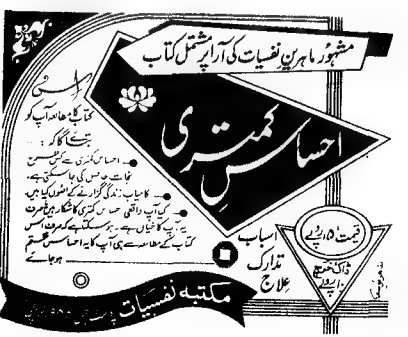 مشہور ماہرین نفسیات کی آرا پر مشتمل کتاب
احساسِ کمتری
اس
کتاب کا مطالعہ آپ کو
بتائے گا کہ:...
احساس کمتری سے کس طرح
نجات حاصل کی جا سکتی ہے۔
کامیاب زندگی گزارنے کے اصول کیا ہیں
کیا آپ واقعی احساس کمتری کا شکار ہیں یا صرف
یہ آپ کا خیال ہے۔ ہو سکتا ہے کہ صرف اس
کتاب کے مطالعہ سے ہی آپ کا یہ احساس ختم
ہو جائے
اسباب
تدارک
علاج
قیمت ۱۵ روپے
ڈاک خرچ
۱۰ روپے
مکتبہ نفسیات